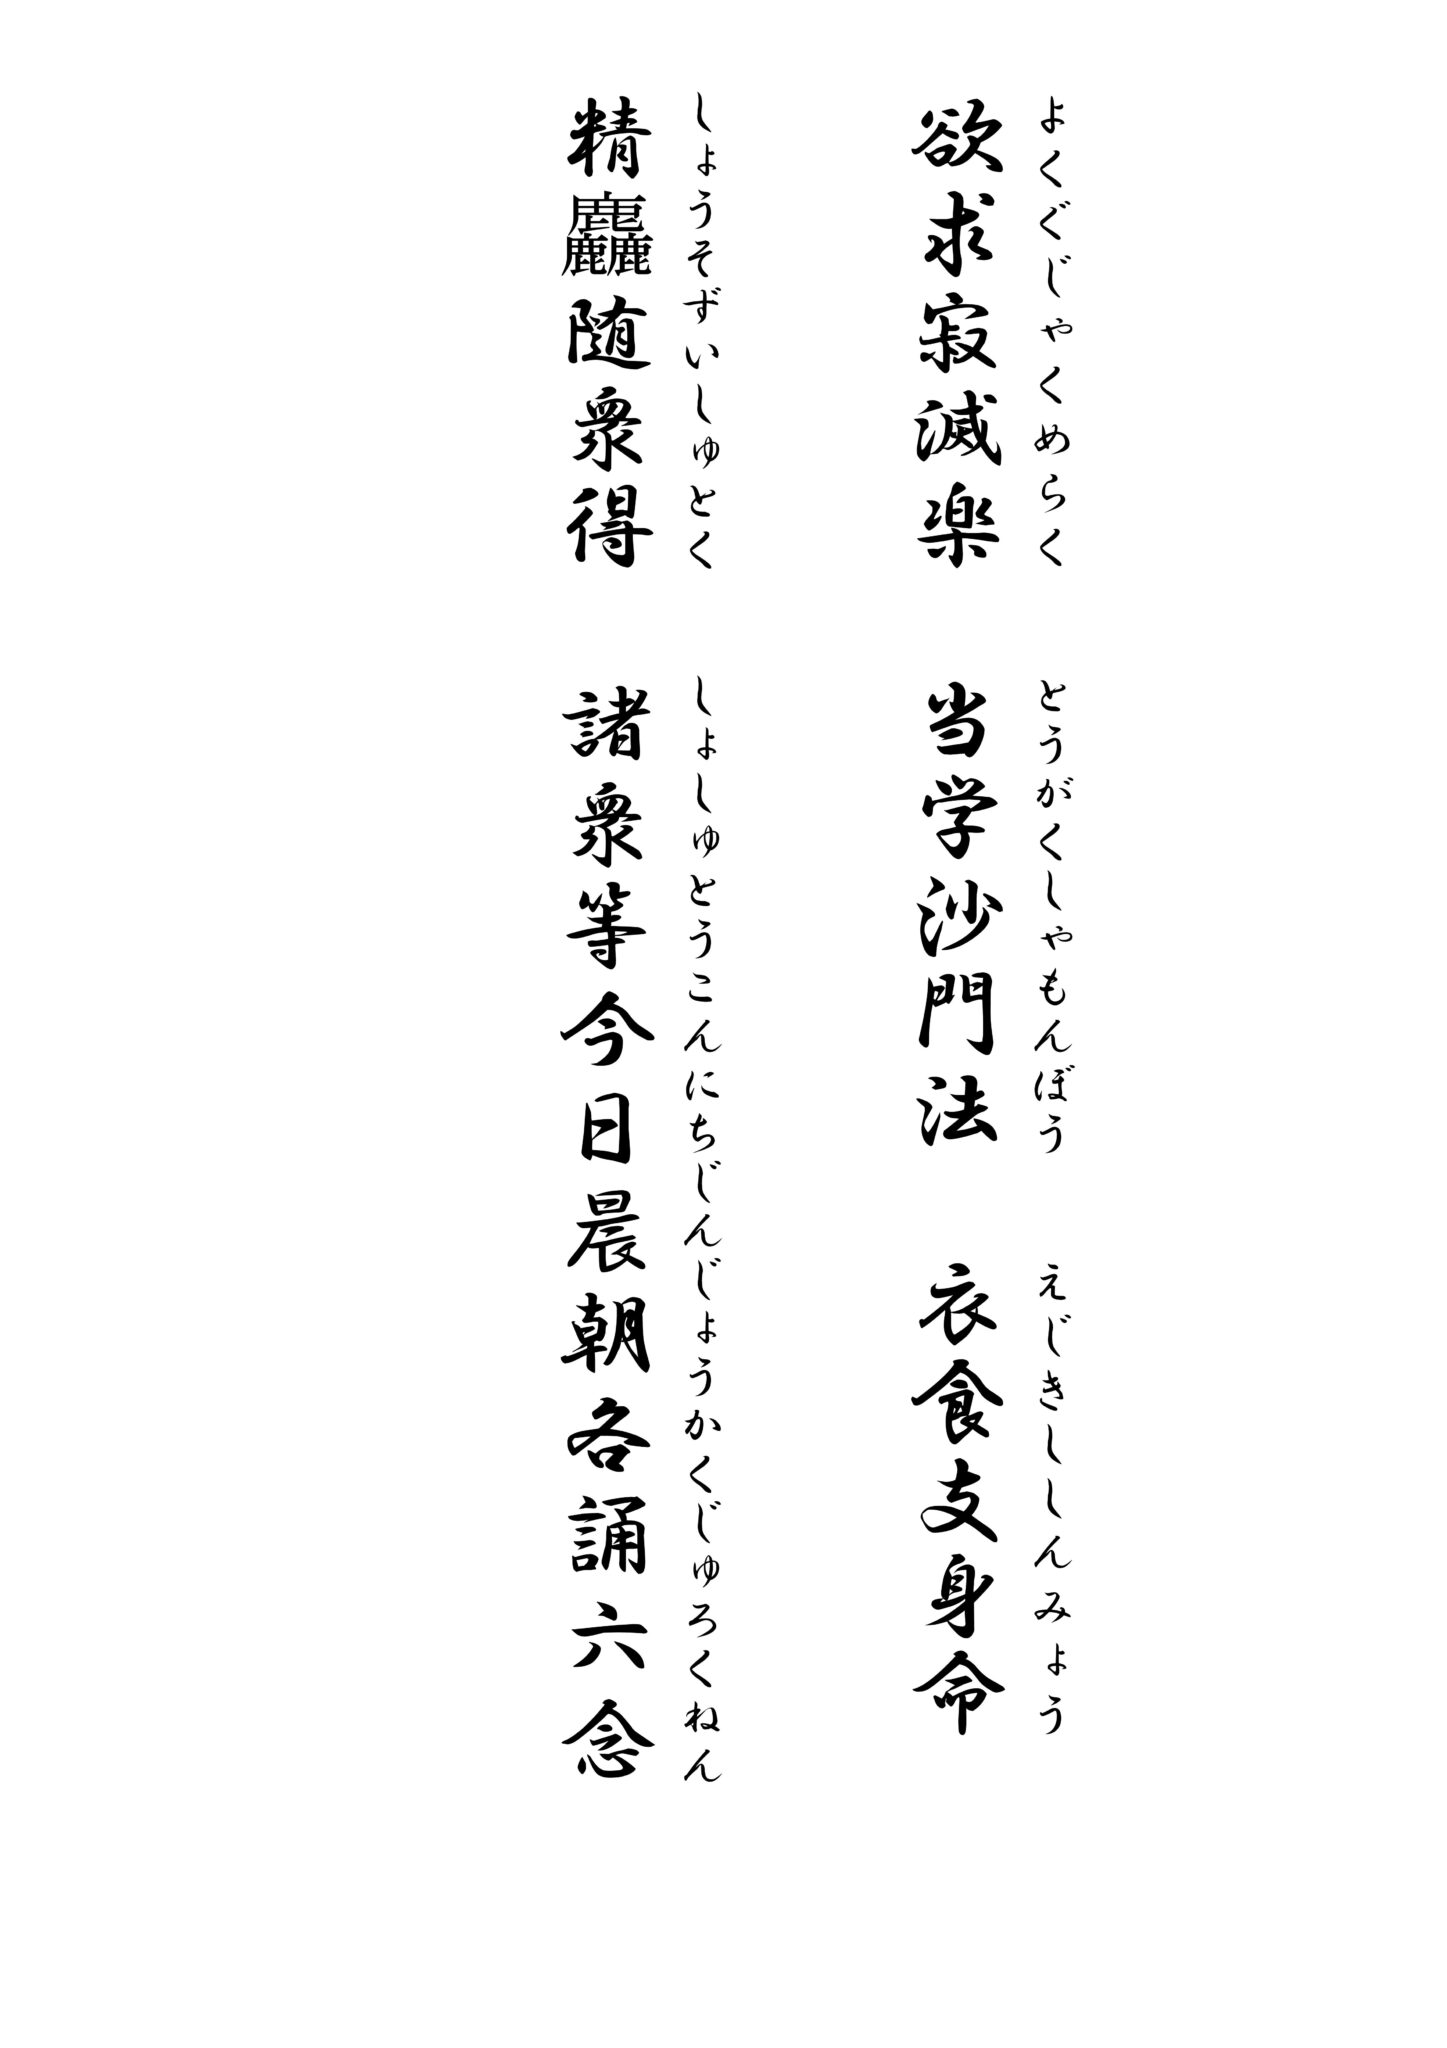 よくぐじゃくめらく　とうがくしゃもんぼう　えじきししんみょう
欲求寂滅楽　当学沙門法　衣食支身命
しょうそずいしゅとく　しょしゅとうこんにちじんじょうかくじゅろくねん
精麤随衆得　諸衆等今日晨朝各誦六念